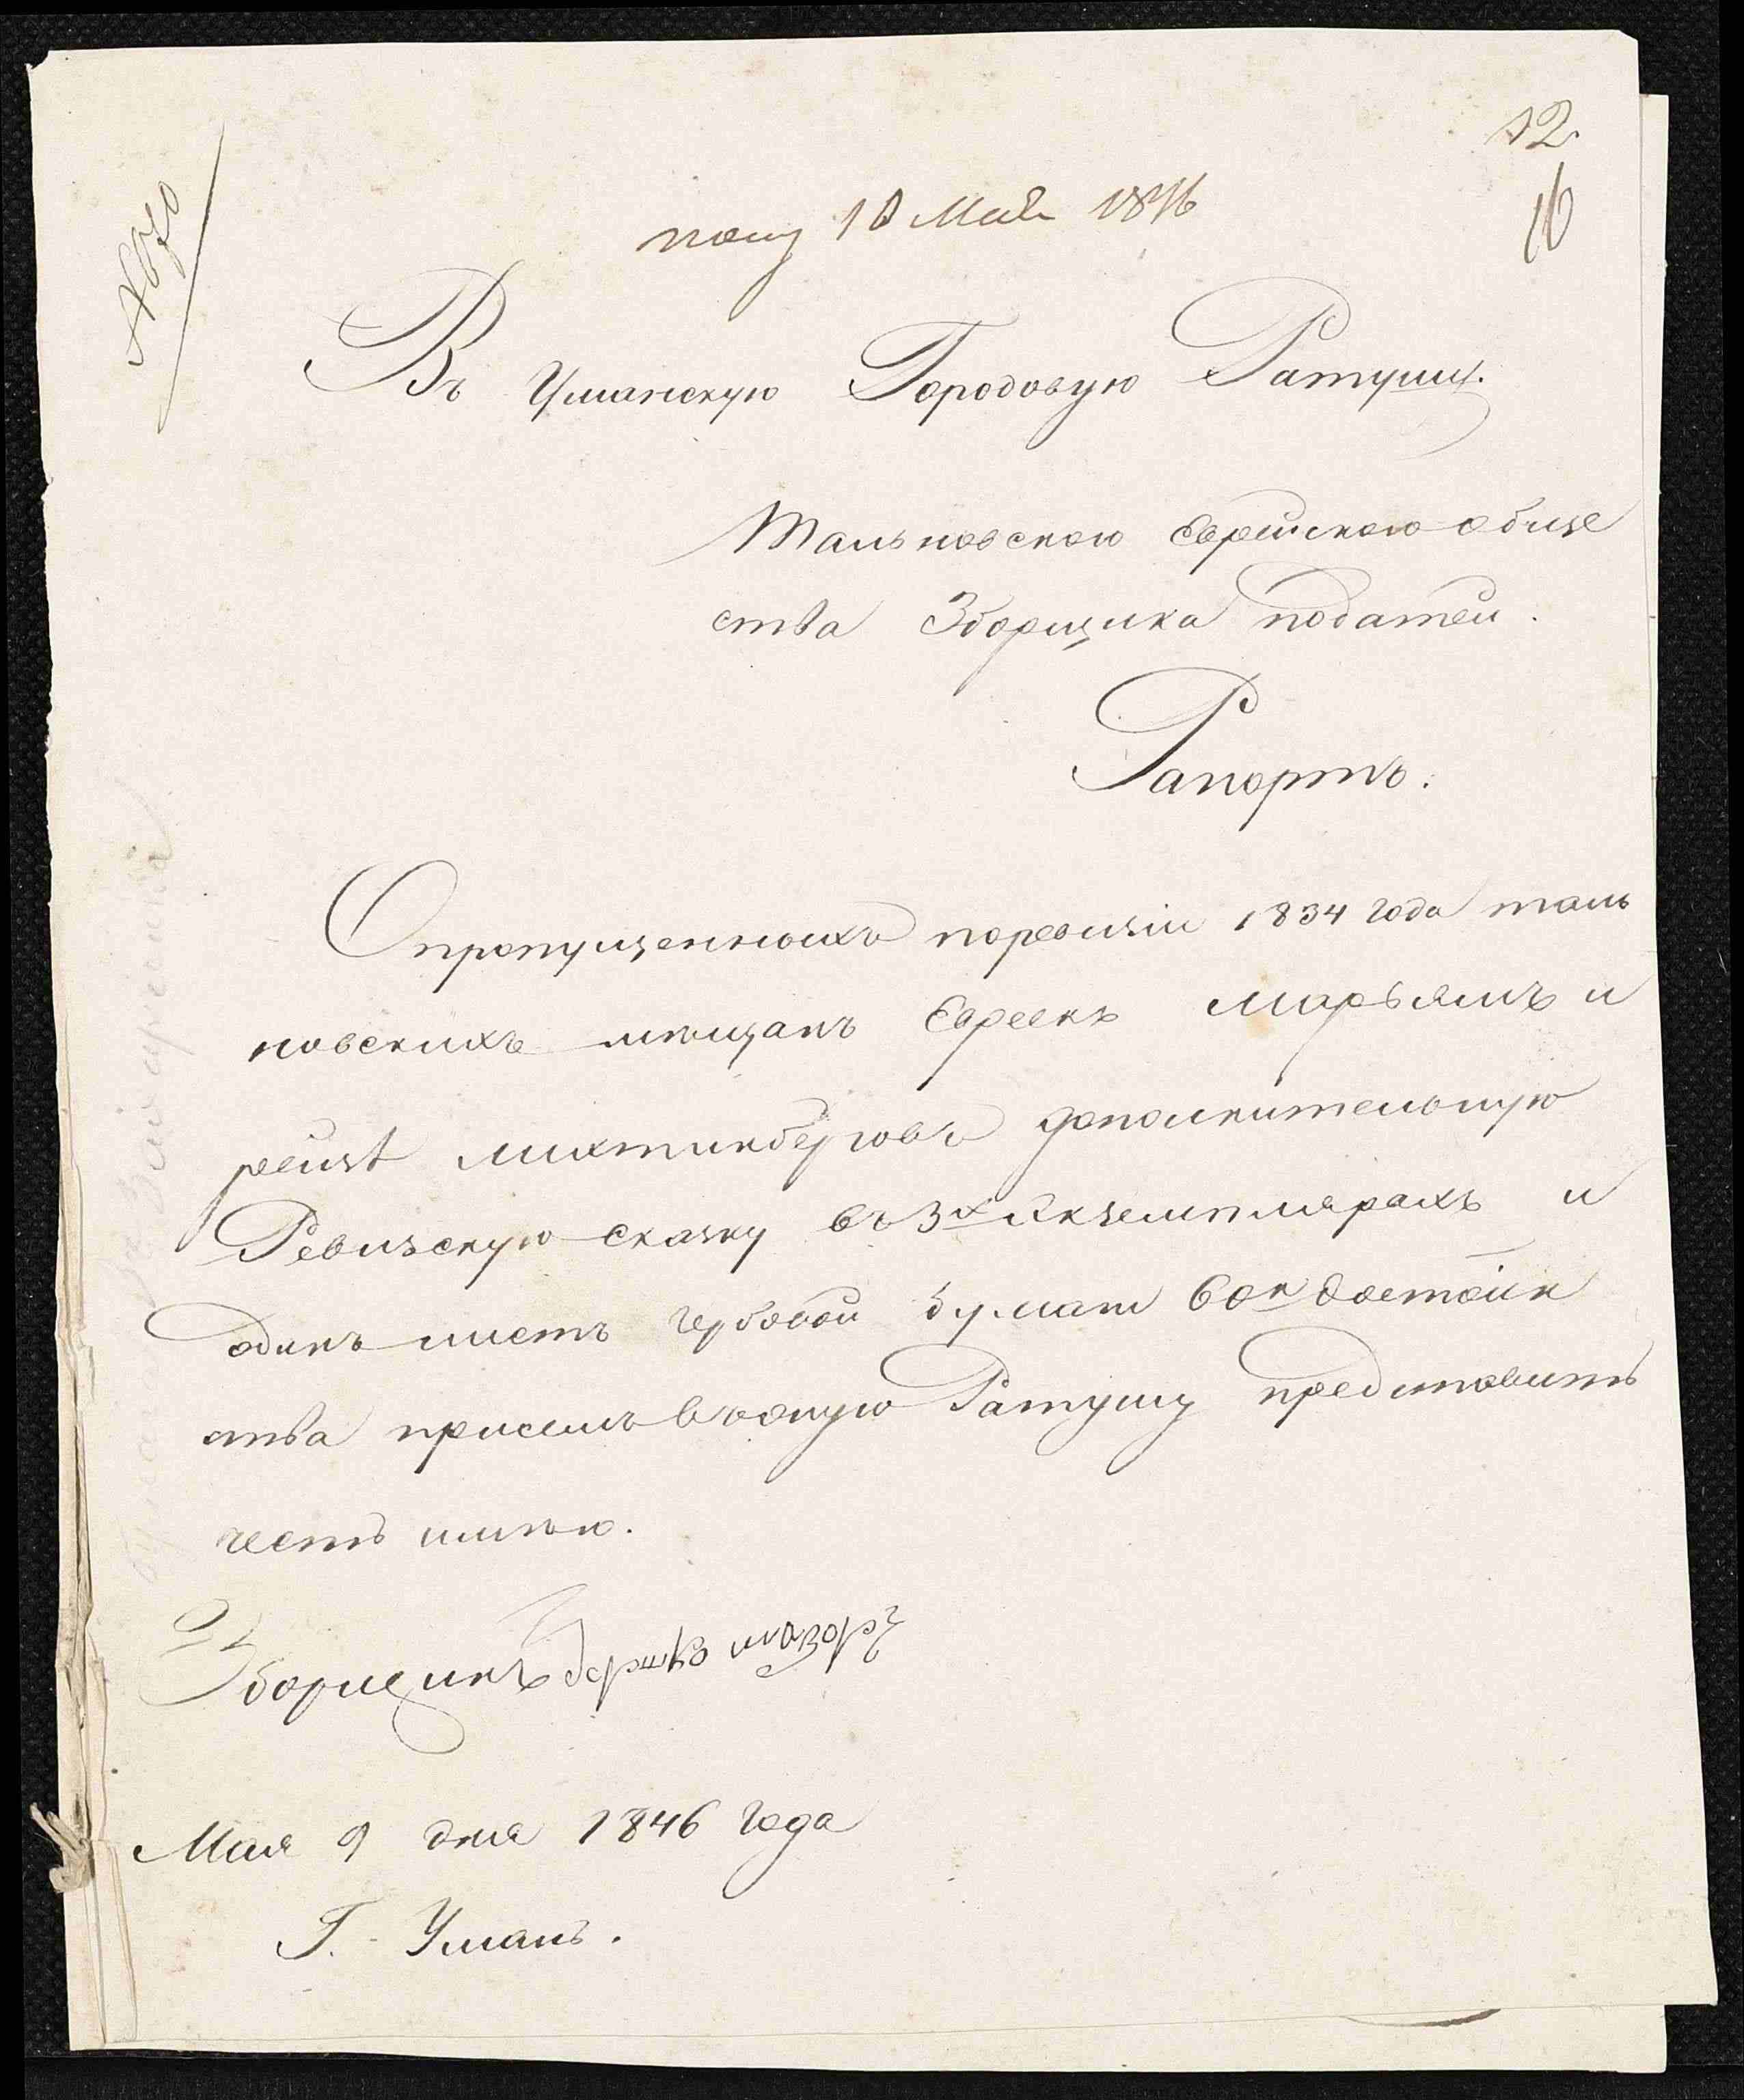 12
16
полу 10 Мая 1846
Въ Уманскую Городовую Ратушу.
Тальновского Еврейского обще
ства Зборщика податей.
Рапортъ.
О пропущенныхъ по ревизіи 1834 года таль
новскихъ мѣщанъ Евреекъ Марьямъ и
рейзѣ дополнительную
Ревизскую сказку въ 3х Екземплярахъ и
одинъ листъ гербовой бумаги 60 к достоин
ства присемъ въ оную Ратушу представить
честь имѣю.
Зборщикъ
Мая 9 дня 1846 года
Г. Умань.